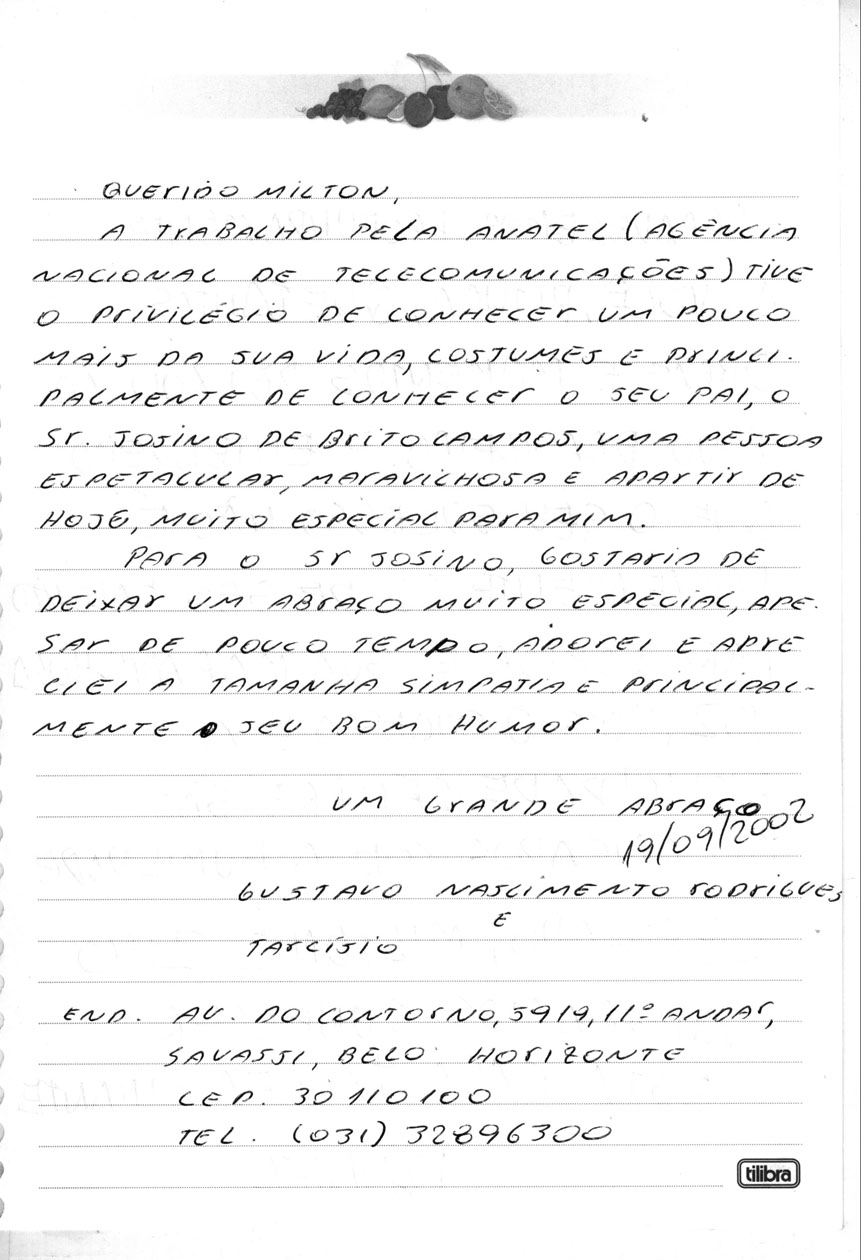 QUERIDO MILTON,
A TRABALHO PELA ANATEL (AGÊNCIA
NACIONAL DE TELECOMUNICAÇÕES) TIVE
O PRIVILÉGIO DE CONHECER UM POUCO
MAIS DA SUA VIDA, COSTUMES E PRINCI-
PALMENTE DE CONHECER O SEU PAI, O
Sr. JOSINO DE BRITO CAMPOS, UMA PESSOA
ESPETACULAR, MARAVILHOSA E APARTIR DE
HOJE, MUITO ESPECIAL PARA MIM.
PARA O SR JOSINO, GOSTARIA DE
DEIXAR UM ABRAÇO MUITO ESPECIAL, APE-
SAR DE POUCO TEMPO, ADOREI E APRE
CIEI A TAMANHA SIMPATIA E PRINCIPAL-
MENTE O SEU BOM HUMOR.
UM GRANDE ABRAÇO
19/09/2002
GUSTAVO NASCIMENTO RODRIGUES
E
TARCÍSIO
END. AV. DO CONTORNO, 5919, 11º ANDAR,
SAVASSI, BELO HORIZONTE
CEP. 30110100
TEL. (031) 32896300
tilibra